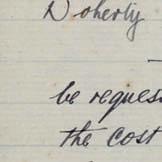 Doherty
be reques
the cost